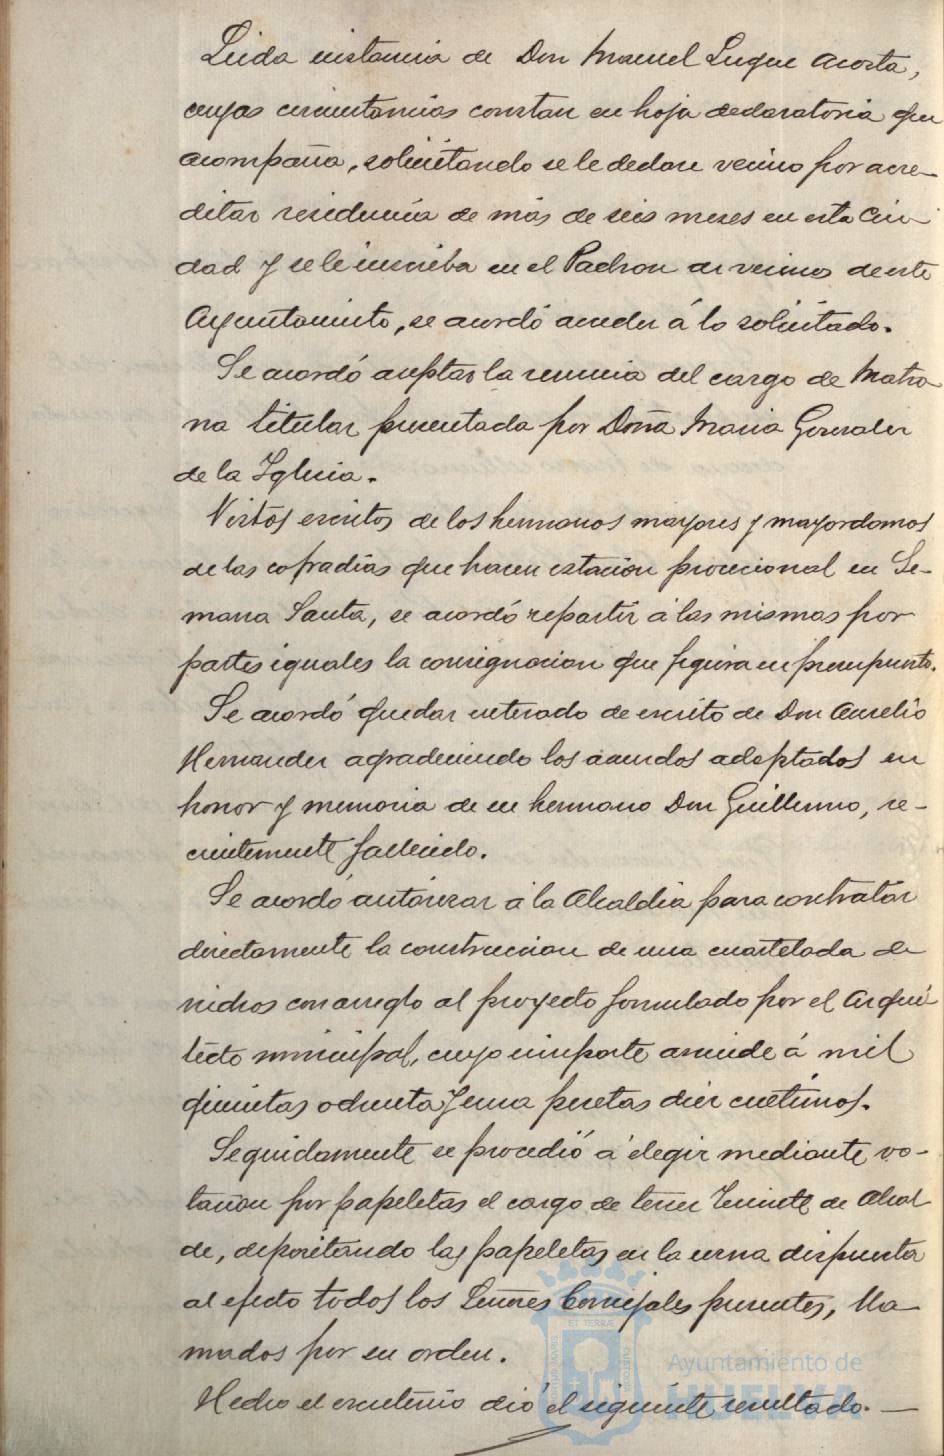 Leida instancia de Don Manuel Luque Acosta,
cuyas circuntancias constan en hoja declaratoria que
acompaña, solicitando se le declare vecino por acre-
ditar residencia de más de seis meses en esta Ciu-
dad y se le inscriba en el Padron de vecinos de este
Ayuntamiento, se acordó acceder á lo solicitado.
Se acordó aceptar la renuncia del cargo de Matro-
na titular presentada por Doña Maria Gonzalez
de la Iglesia.
Vistos escritos de los hermanos mayores y mayordomos
de las cofradias que hacen estación procecional en Se-
mana Santa, se acordó repartir á las mismas por
partes iguales la consignacion que figura en presupuesto.
Se acordó quedar enterado de escrito de Don Aurelio
Hernandez agradeciendo los acuerdos adoptados en
honor y memoria de su hermano Don Guillermo, re-
cientemente fallecido.
Se acordó autorizar á la Alcaldia para contratar
directamente la construccion de una cuartelada de
nichos con arreglo al proyecto formulado por el Arqui-
tecto municipal, cuyo importe asciende á mil
quinientas ochenta y una pesetas diez centimos.
Seguidamente se procedió á elegir mediante vo-
tacion por papeletas el cargo de tercer Teniente de Alcal
de, depositando las papeletas en la urna dispuesta
al efecto todos los Señores Concejales presentes, lla-
mados por su orden.
Hecho el escrutinio dió el siguiente resultado. —
ET TERRÆ
PORTUS MARIS
CUSTODIA
Ayuntamiento de
HUELVA